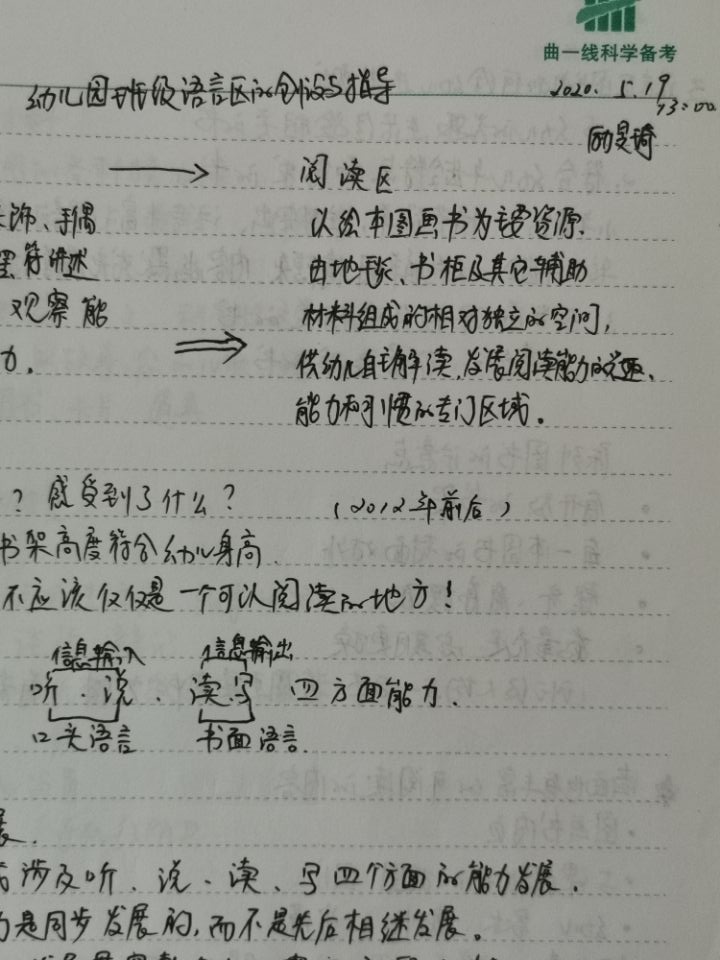 曲一线科学备考
幼儿园班级语言区的创设与指导
2020. 5. 19
13:00
阅读区
饰、手偶
以绘本图画书为主要资源.
符讲述
由地毯、书柜及其它辅助
观察能
材料组成的相对独立的空间,
力.
供幼儿自主解读、发展阅读能力的兴趣、
能力和习惯的专门区域。
? 感受到了什么?
(2012年前后)
书架高度符合幼儿身高.
不应该仅仅是一个可以阅读的地方!
信息输入 信息输出
听、说、读写 四方面能力.
口头语言 书面语言.
展.
涉及听、说、读、写四个方面的能力发展.
是同步发展的,而不是先后相继发展。